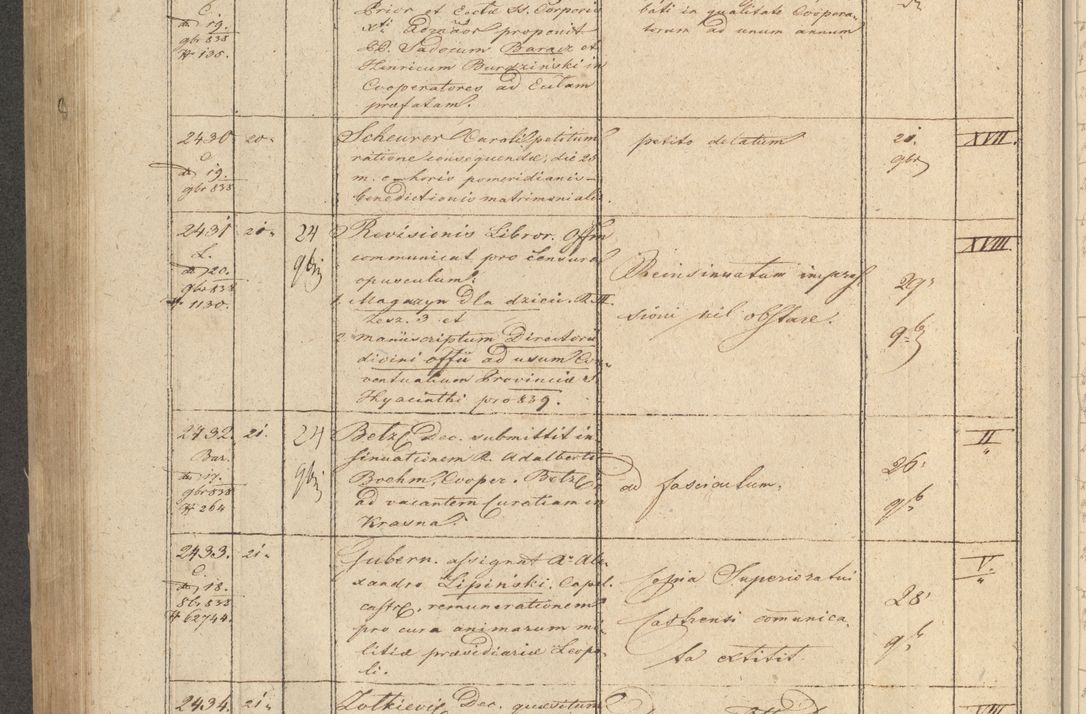 Prior et Ectae SS. Corporis
Xti proponit
Sadocum Baracz et
Henricum Burdziński in
Cooperatores ad Eclam
praefatam.
bati in qualitate Coopera-
torum ad unum annum
19.
gbr 838
# 135.
2430 20
C.
dd 19.
gbr 838
Scheurer petitum
ratione consequendae, die 25
m. c. horis pomeridianis
benedictionis matrimonialis.
petito delatum
21.
gbr
XVII.
2431 21.
L.
dd 20.
gbr 838
# 1130.
24
gbr
Revisionis Libror. Offm
communicat pro censura
opusculum:
1. Magazyn dla dzieci. R. III.
Zesz. 3 et
2. manuscriptum Directorii
divini offii ad usum Con-
ventualium Provinciae S.
Hyacinthi pro 839.
Reinsinuatum impres-
sioni nil obstare.
29
9b
XVIII.
2432. 21.
Bar.
dd 17.
gbr 838
# 264
24
gbr
Betz Dec. submittit in
sinuationem R. Adalberti
Boehm, Cooper. Betz
ad vacantem Curatiam in
Krasna.
ad fasciculum.
26
9b
II
2433. 21.
C.
dd 18.
8br 838
# 62744.
Gubern. assignat Ale-
xandro Lipiński. Capel.
castr. remunerationem
pro cura animarum mi-
litiae praesidiariae Leopo-
li.
Copia Superioratui
Castrensi communica-
ta extitit
28
9b
V.
2434. 21.
Zolkievis Dec. quaesitum
VIII